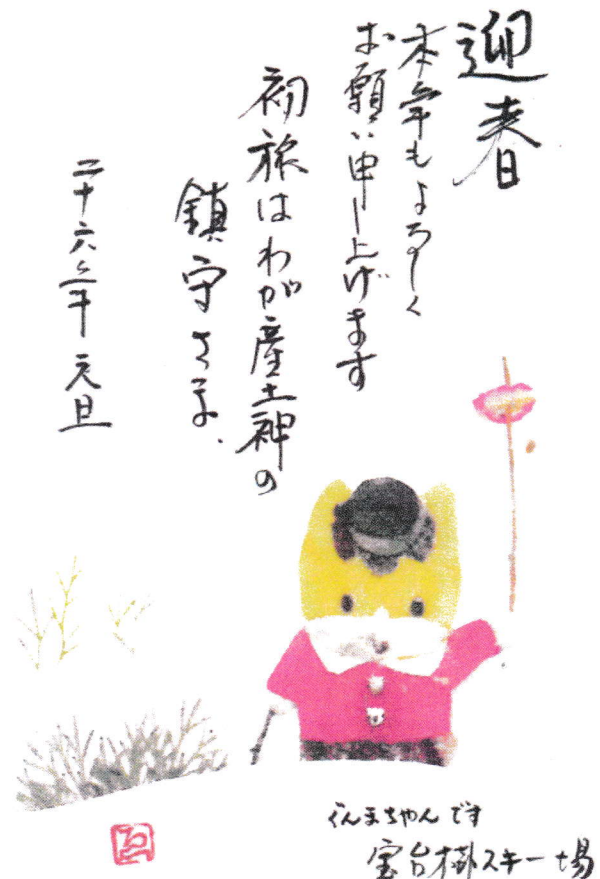 迎春
本年もよろしく
お願い申し上げます
初旅はわが産土神の
鎮守さま、
二十六年元旦
ぐんまちゃんです
宝台樹スキー場